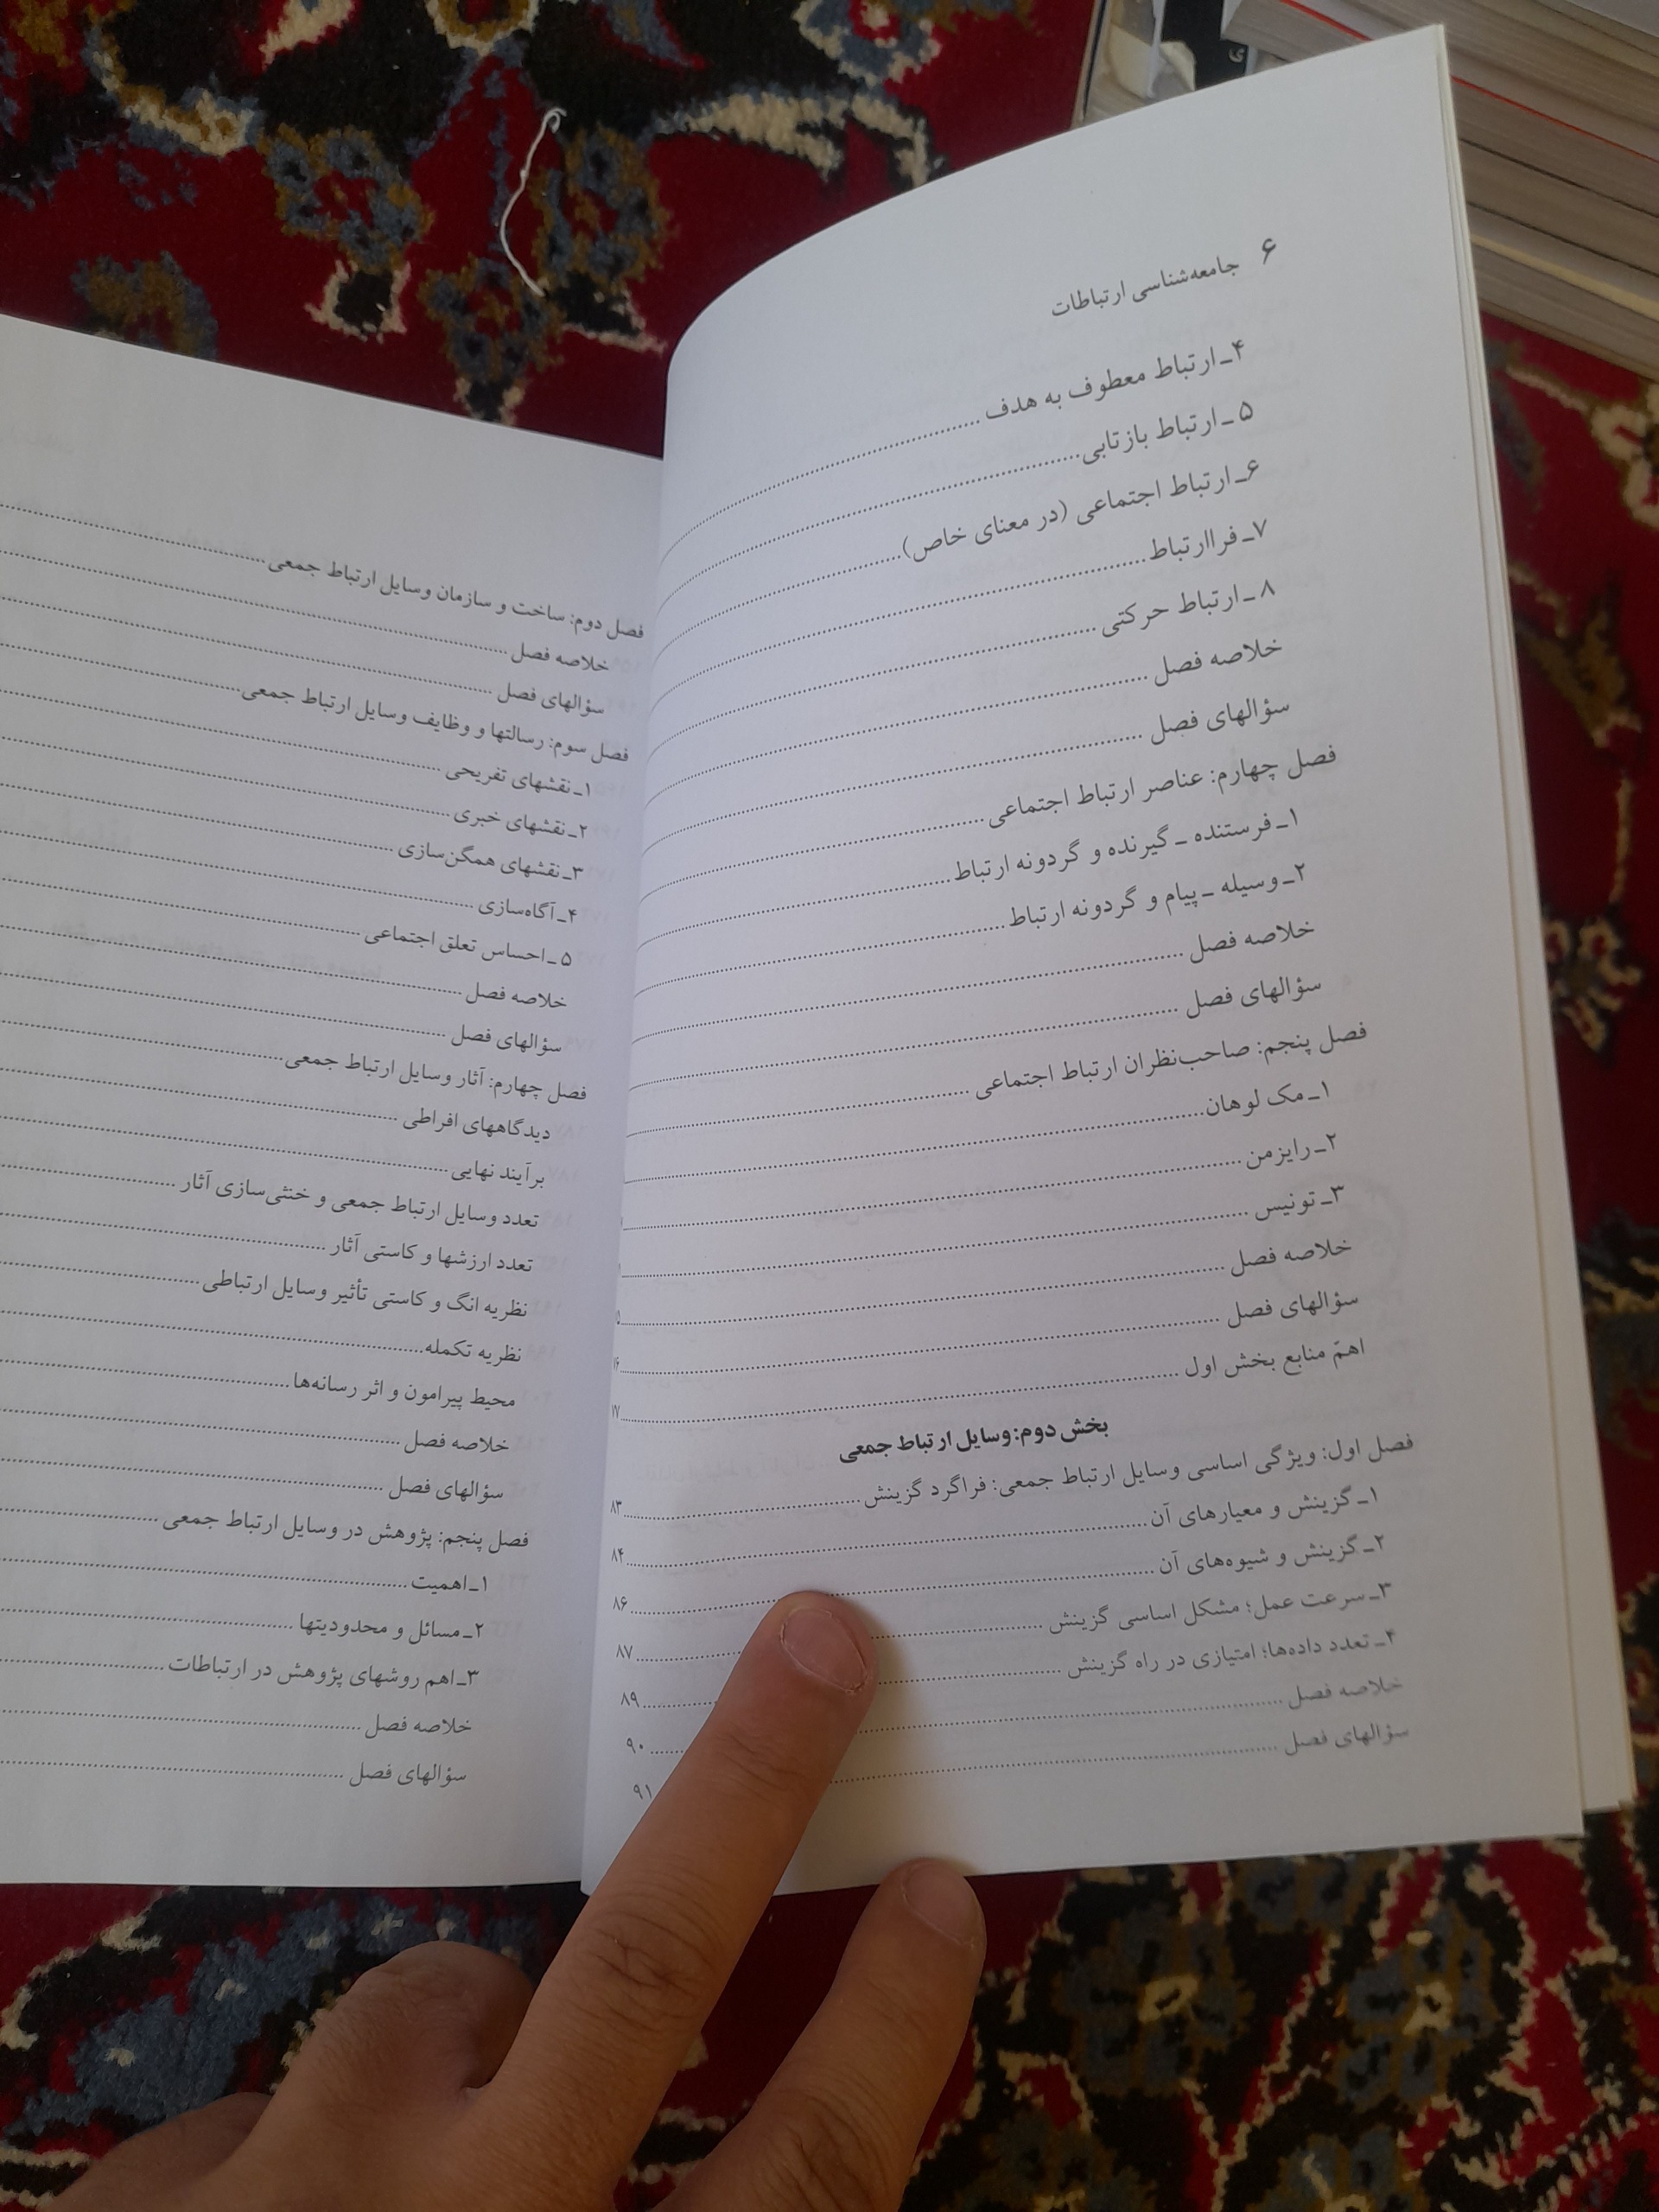 ۶ جامعه‌شناسی ارتباطات
۴ـ ارتباط معطوف به هدف
۵ ـ ارتباط بازتابی
۶ـ ارتباط اجتماعی (در معنای خاص)
۷ـ فراارتباط
۸ ـ ارتباط حرکتی
خلاصه فصل
سؤالهای فصل
فصل چهارم: عناصر ارتباط اجتماعی
۱ـ فرستنده ـ گیرنده و گردونه ارتباط
۲ـ وسیله ـ پیام و گردونه ارتباط
خلاصه فصل
سؤالهای فصل
فصل پنجم: صاحب‌نظران ارتباط اجتماعی
۱ـ مک لوهان
۲ـ رایزمن
۳ـ تونیس
خلاصه فصل
سؤالهای فصل
اهمّ منابع بخش اول
بخش دوم: وسایل ارتباط جمعی
فصل اول: ویژگی اساسی وسایل ارتباط جمعی: فراگرد گزینش ۸۳
۱ـ گزینش و معیارهای آن ۸۴
۲ـ گزینش و شیوه‌های آن ۸۶
۳ـ سرعت عمل؛ مشکل اساسی گزینش ۸۷
۴ـ تعدد داده‌ها؛ امتیازی در راه گزینش ۸۹
خلاصه فصل ۹۰
سؤالهای فصل ۹۱
فصل دوم: ساخت و سازمان وسایل ارتباط جمعی
خلاصه فصل
سؤالهای فصل
فصل سوم: رسالتها و وظایف وسایل ارتباط جمعی
۱ـ نقشهای تفریحی
۲ـ نقشهای خبری
۳ـ نقشهای همگن‌سازی
۴ـ آگاه‌سازی
۵ ـ احساس تعلق اجتماعی
خلاصه فصل
سؤالهای فصل
فصل چهارم: آثار وسایل ارتباط جمعی
دیدگاههای افراطی
برآیند نهایی
تعدد وسایل ارتباط جمعی و خنثی‌سازی آثار
تعدد ارزشها و کاستی آثار
نظریه انگ و کاستی تأثیر وسایل ارتباطی
نظریه تکمله
محیط پیرامون و اثر رسانه‌ها
خلاصه فصل
سؤالهای فصل
فصل پنجم: پژوهش در وسایل ارتباط جمعی
۱ـ اهمیت
۲ـ مسائل و محدودیتها
۳ـ اهم روشهای پژوهش در ارتباطات
خلاصه فصل
سؤالهای فصل